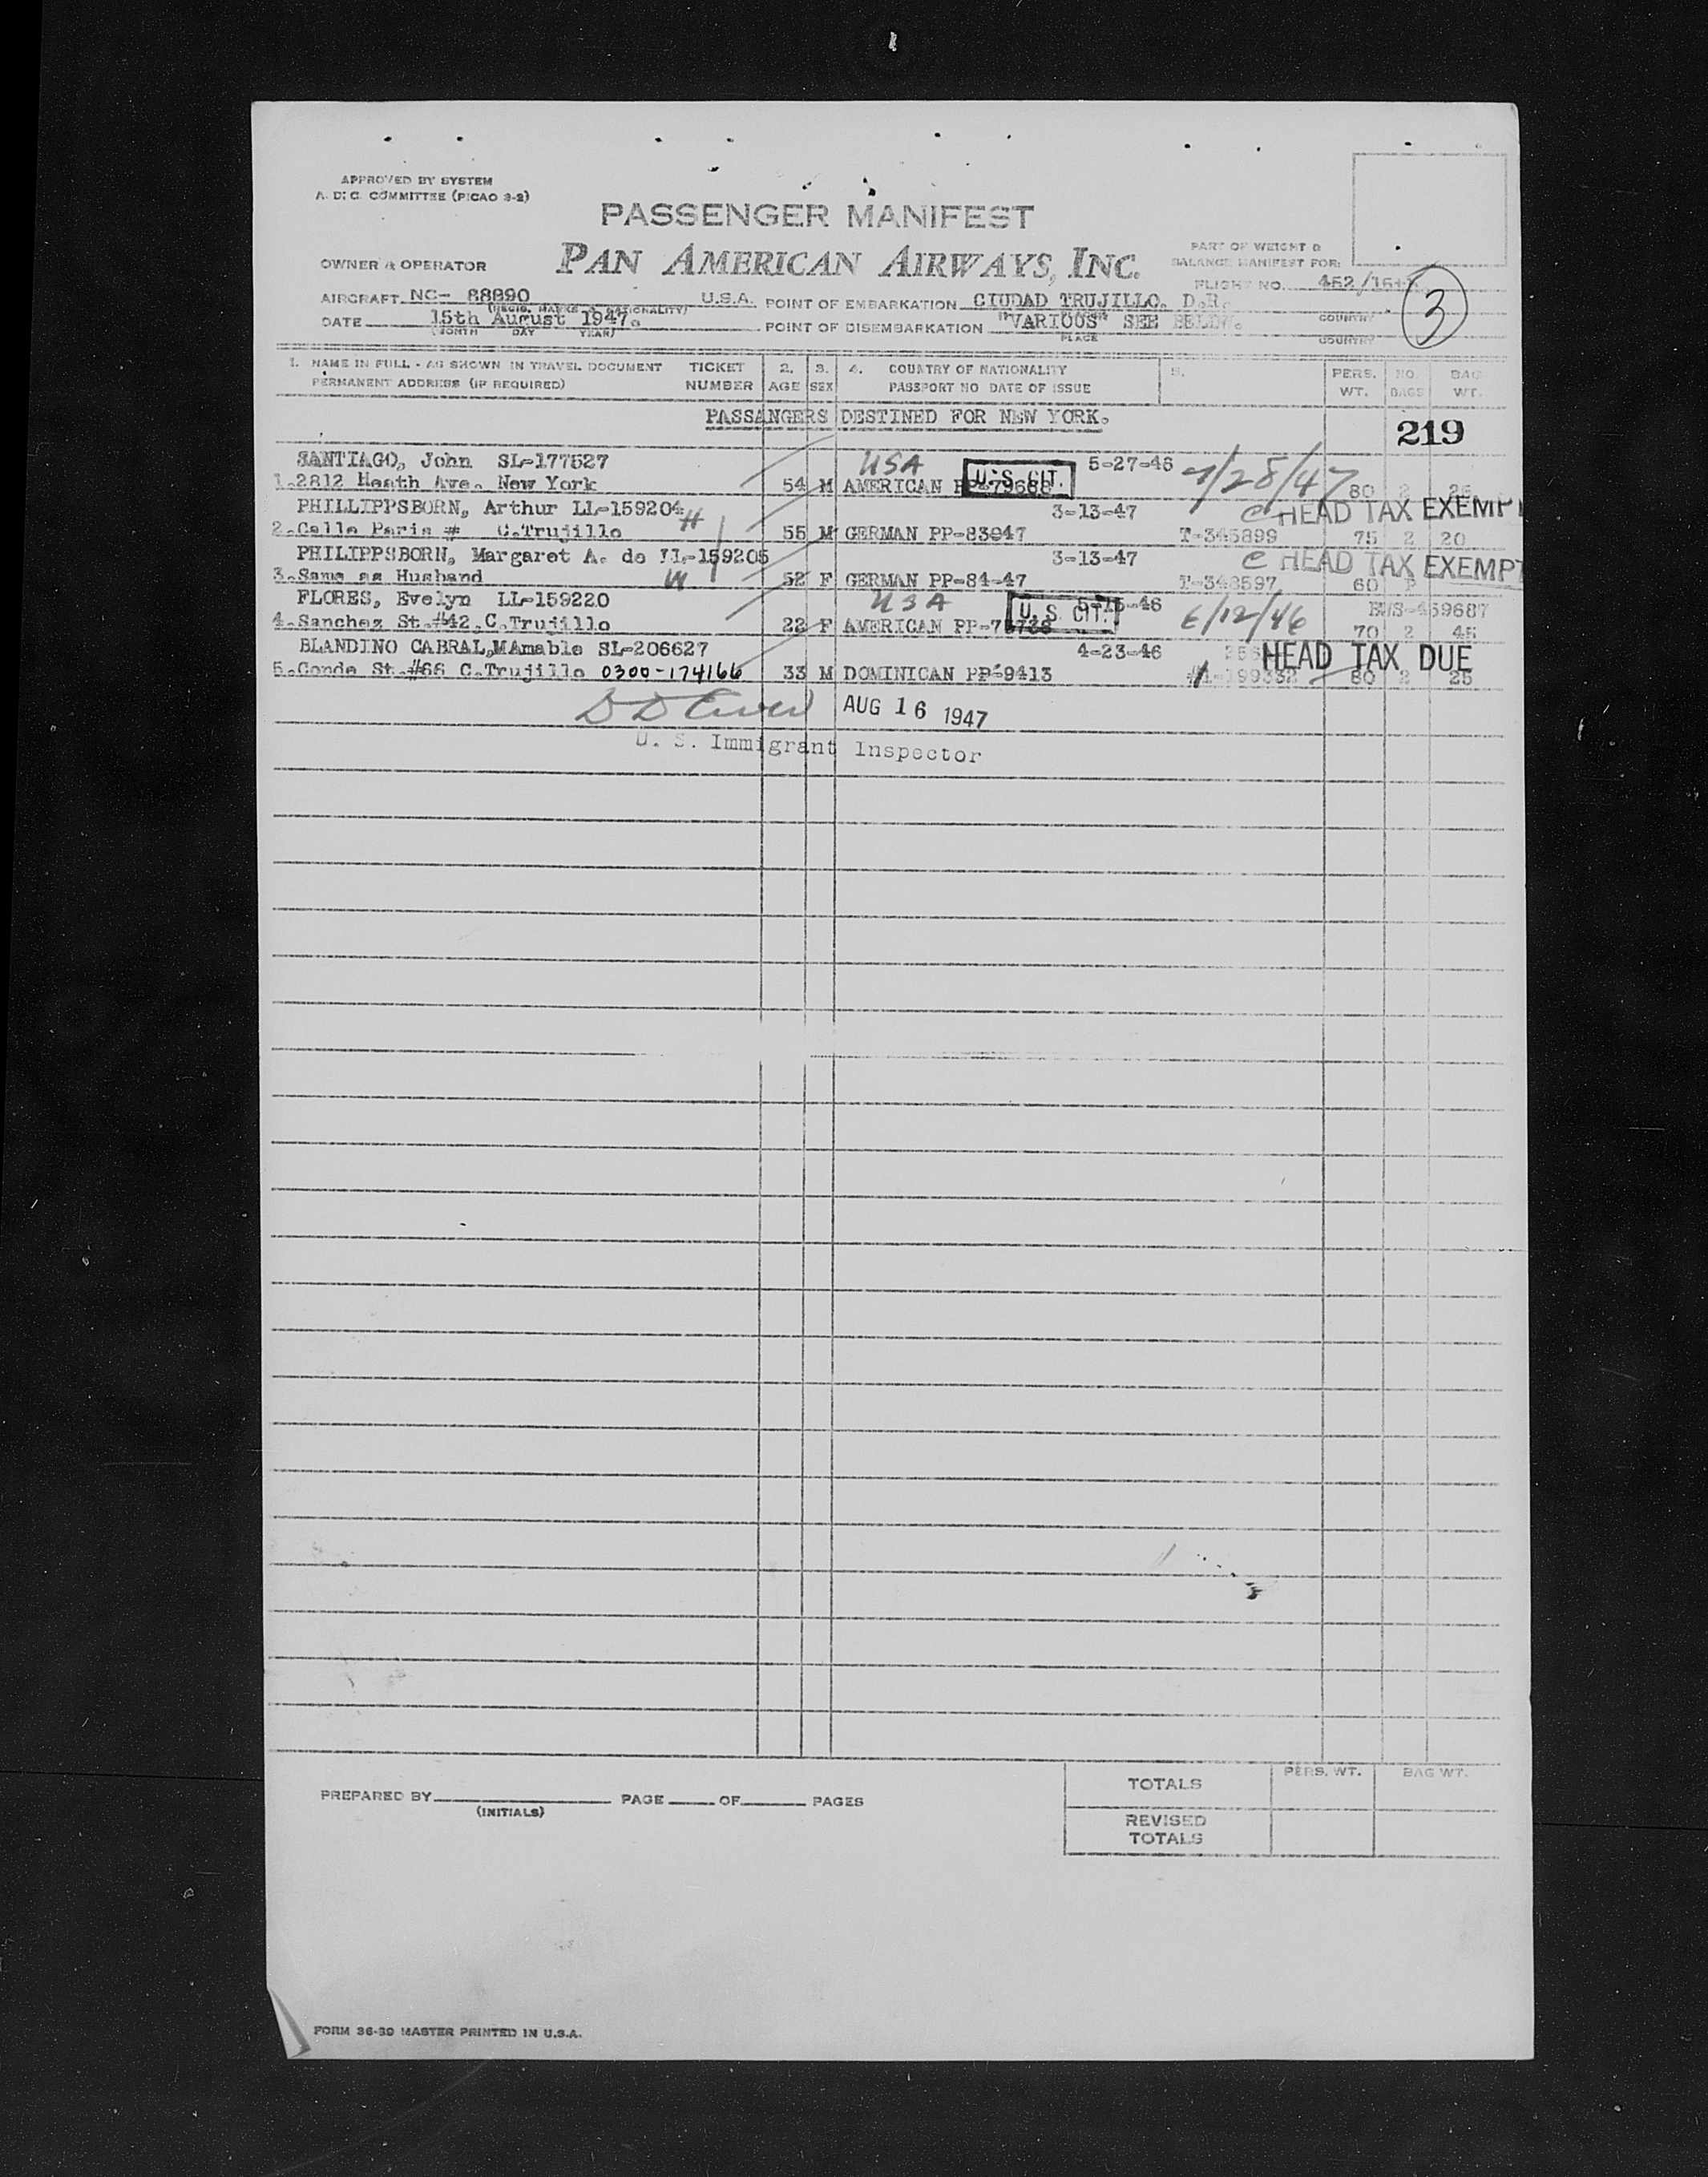 APPROVED BY SYSTEM
A. D. C. COMMITTEE (PICAO 3-2)
PASSENGER MANIFEST
PAN AMERICAN AIRWAYS, INC.
OWNER & OPERATOR
PART OF WEIGHT &
BALANCE MANIFEST FOR:
FLIGHT NO. 452/
3
AIRCRAFT NC- 88890 U.S.A. POINT OF EMBARKATION CIUDAD TRUJILLO, D.R. COUNTRY
DATE 15th August 1947. POINT OF DISEMBARKATION "VARIOUS" SEE BELOW. COUNTRY
(MONTH DAY YEAR) PLACE
1. NAME IN FULL - AS SHOWN IN TRAVEL DOCUMENT TICKET 2. 3. 4. COUNTRY OF NATIONALITY 5. PERS. NO. BAG
PERMANENT ADDRESS (IF REQUIRED) NUMBER AGE SEX PASSPORT NO DATE OF ISSUE WT. BAGS WT.
PASSANGERS DESTINED FOR NEW YORK.
219
SANTIAGO, John SL-177527 USA U.S. CIT. 5-27-46 7/28/47
1.2812 Heath Ave. New York 54 M AMERICAN 80 2
PHILLIPPSBORN, Arthur LL-159204 H 3-13-47 C HEAD TAX EXEMPT
2.Calle Paris # C.Trujillo 55 M GERMAN PP-83-47 T-345899 75 2 20
PHILIPPSBORN, Margaret A. de LL-159205 3-13-47 C HEAD TAX EXEMPT
3.Same as Husband W 52 F GERMAN PP-84-47 T-348597 60
FLORES, Evelyn LL-159220 USA U. S. CIT. 6/12/46
4.Sanchez St.#42,C.Trujillo 22 F AMERICAN 70 2 45
BLANDINO CABRAL,MAmable SL-206627 4-23-46 HEAD TAX DUE
5.Conde St.#66 C.Trujillo 0300-174166 33 M DOMINICAN PP-9413 80 2 25
AUG 16 1947
U. S. Immigrant Inspector
PREPARED BY PAGE OF PAGES
(INITIALS)
TOTALS PERS. WT. BAG WT.
REVISED
TOTALS
FORM 36-30 MASTER PRINTED IN U.S.A.